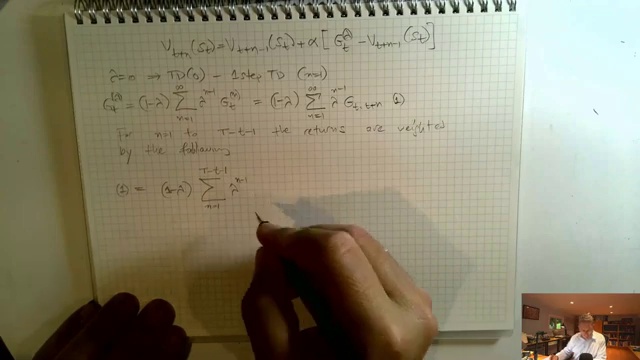 V_{t+n}(S_t) = V_{t+n-1}(S_t) + α [ G_t^λ - V_{t+n-1}(S_t) ]
λ=0 ⇒ TD(0) - 1 step TD (n=1)
G_t^{(λ)} = (1-λ) ∑_{n=1}^{∞} λ^{n-1} G_t^{(n)} = (1-λ) ∑_{n=1}^{∞} λ^{n-1} G_{t:t+n} (1)
For n=1 to T-t-1 the returns are weighted
by the following
(1) = (1-λ) ∑_{n=1}^{T-t-1} λ^{n-1}